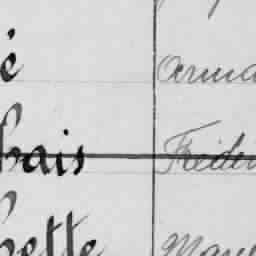 é Arma
bais Fréder
bette Mar